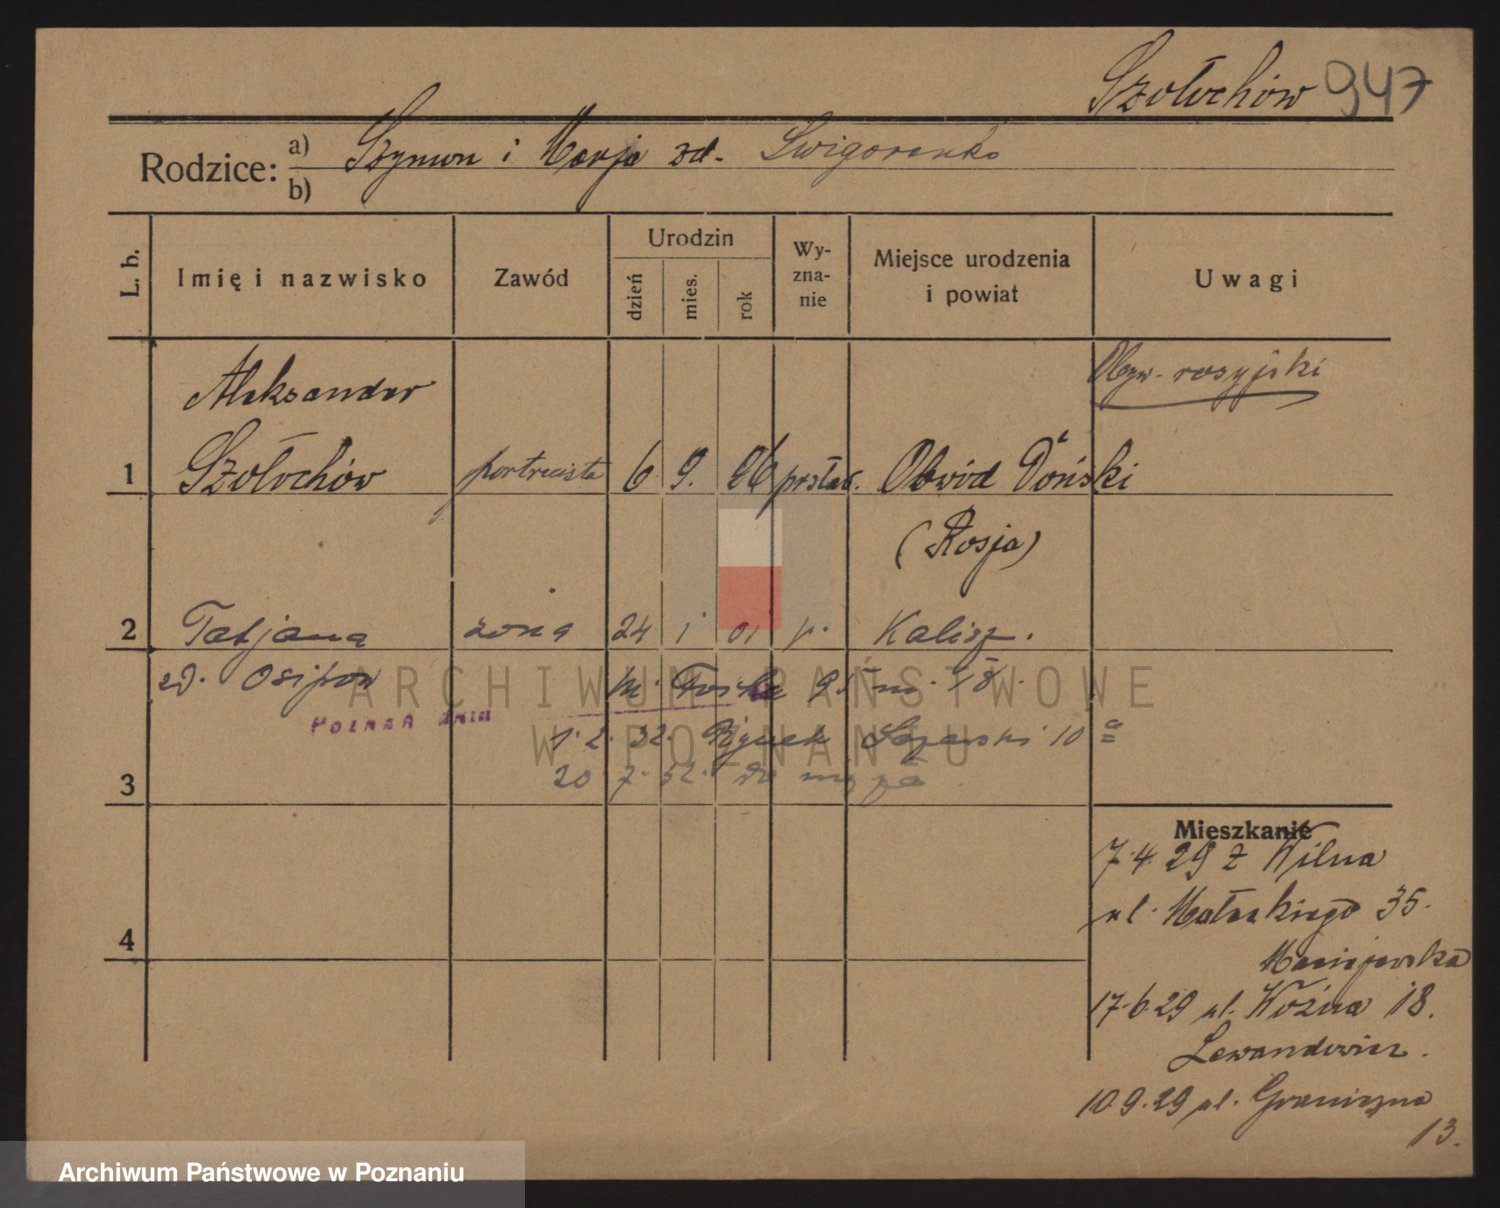 Szołochów 947
Rodzice: a) Szymon i Marja zd. Swigorenko
b)
L. b.
Imię i nazwisko
Zawód
Urodzin
dzień
mies.
rok
Wy-
zna-
nie
Miejsce urodzenia
i powiat
Uwagi
Aleksander
Obyw. rosyjski
1 Szołochów portrecista 6 9. 96 prsław. Obwód Doński
(Rosja)
2 Tatjana żona 24 1 01 p. Kalisz.
zd. Osipow
POZNAŃ DNIA
1. 2. 32. Rynek Łazarski 10 a
3 20 7. 32. do męża
Mieszkanie
7.4.29 z Wilna
ul. Małeckiego 35.
Maciejewska
4
17.6.29 ul. Woźna 18.
Lewandowicz.
10.9.29 ul. Graniczna
13.
ARCHIWUM PAŃSTWOWE
W POZNANIU
Archiwum Państwowe w Poznaniu